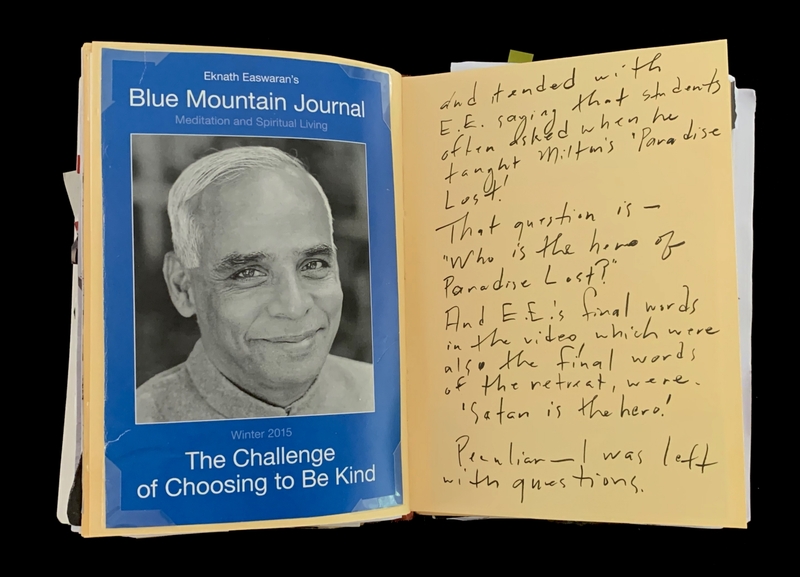 Eknath Easwaran's
Blue Mountain Journal
Meditation and Spiritual Living
Winter 2015
The Challenge
of Choosing to Be Kind
and it ended with
E.E. saying that students
often asked when he
taught Milton's 'Paradise
Lost!
That question is —
"Who is the hero of
Paradise Lost?"
And E.E.'s final words
in the video, which were
also the final words
of the retreat, were.
'Satan is the hero!'
Peculiar — I was left
with questions.